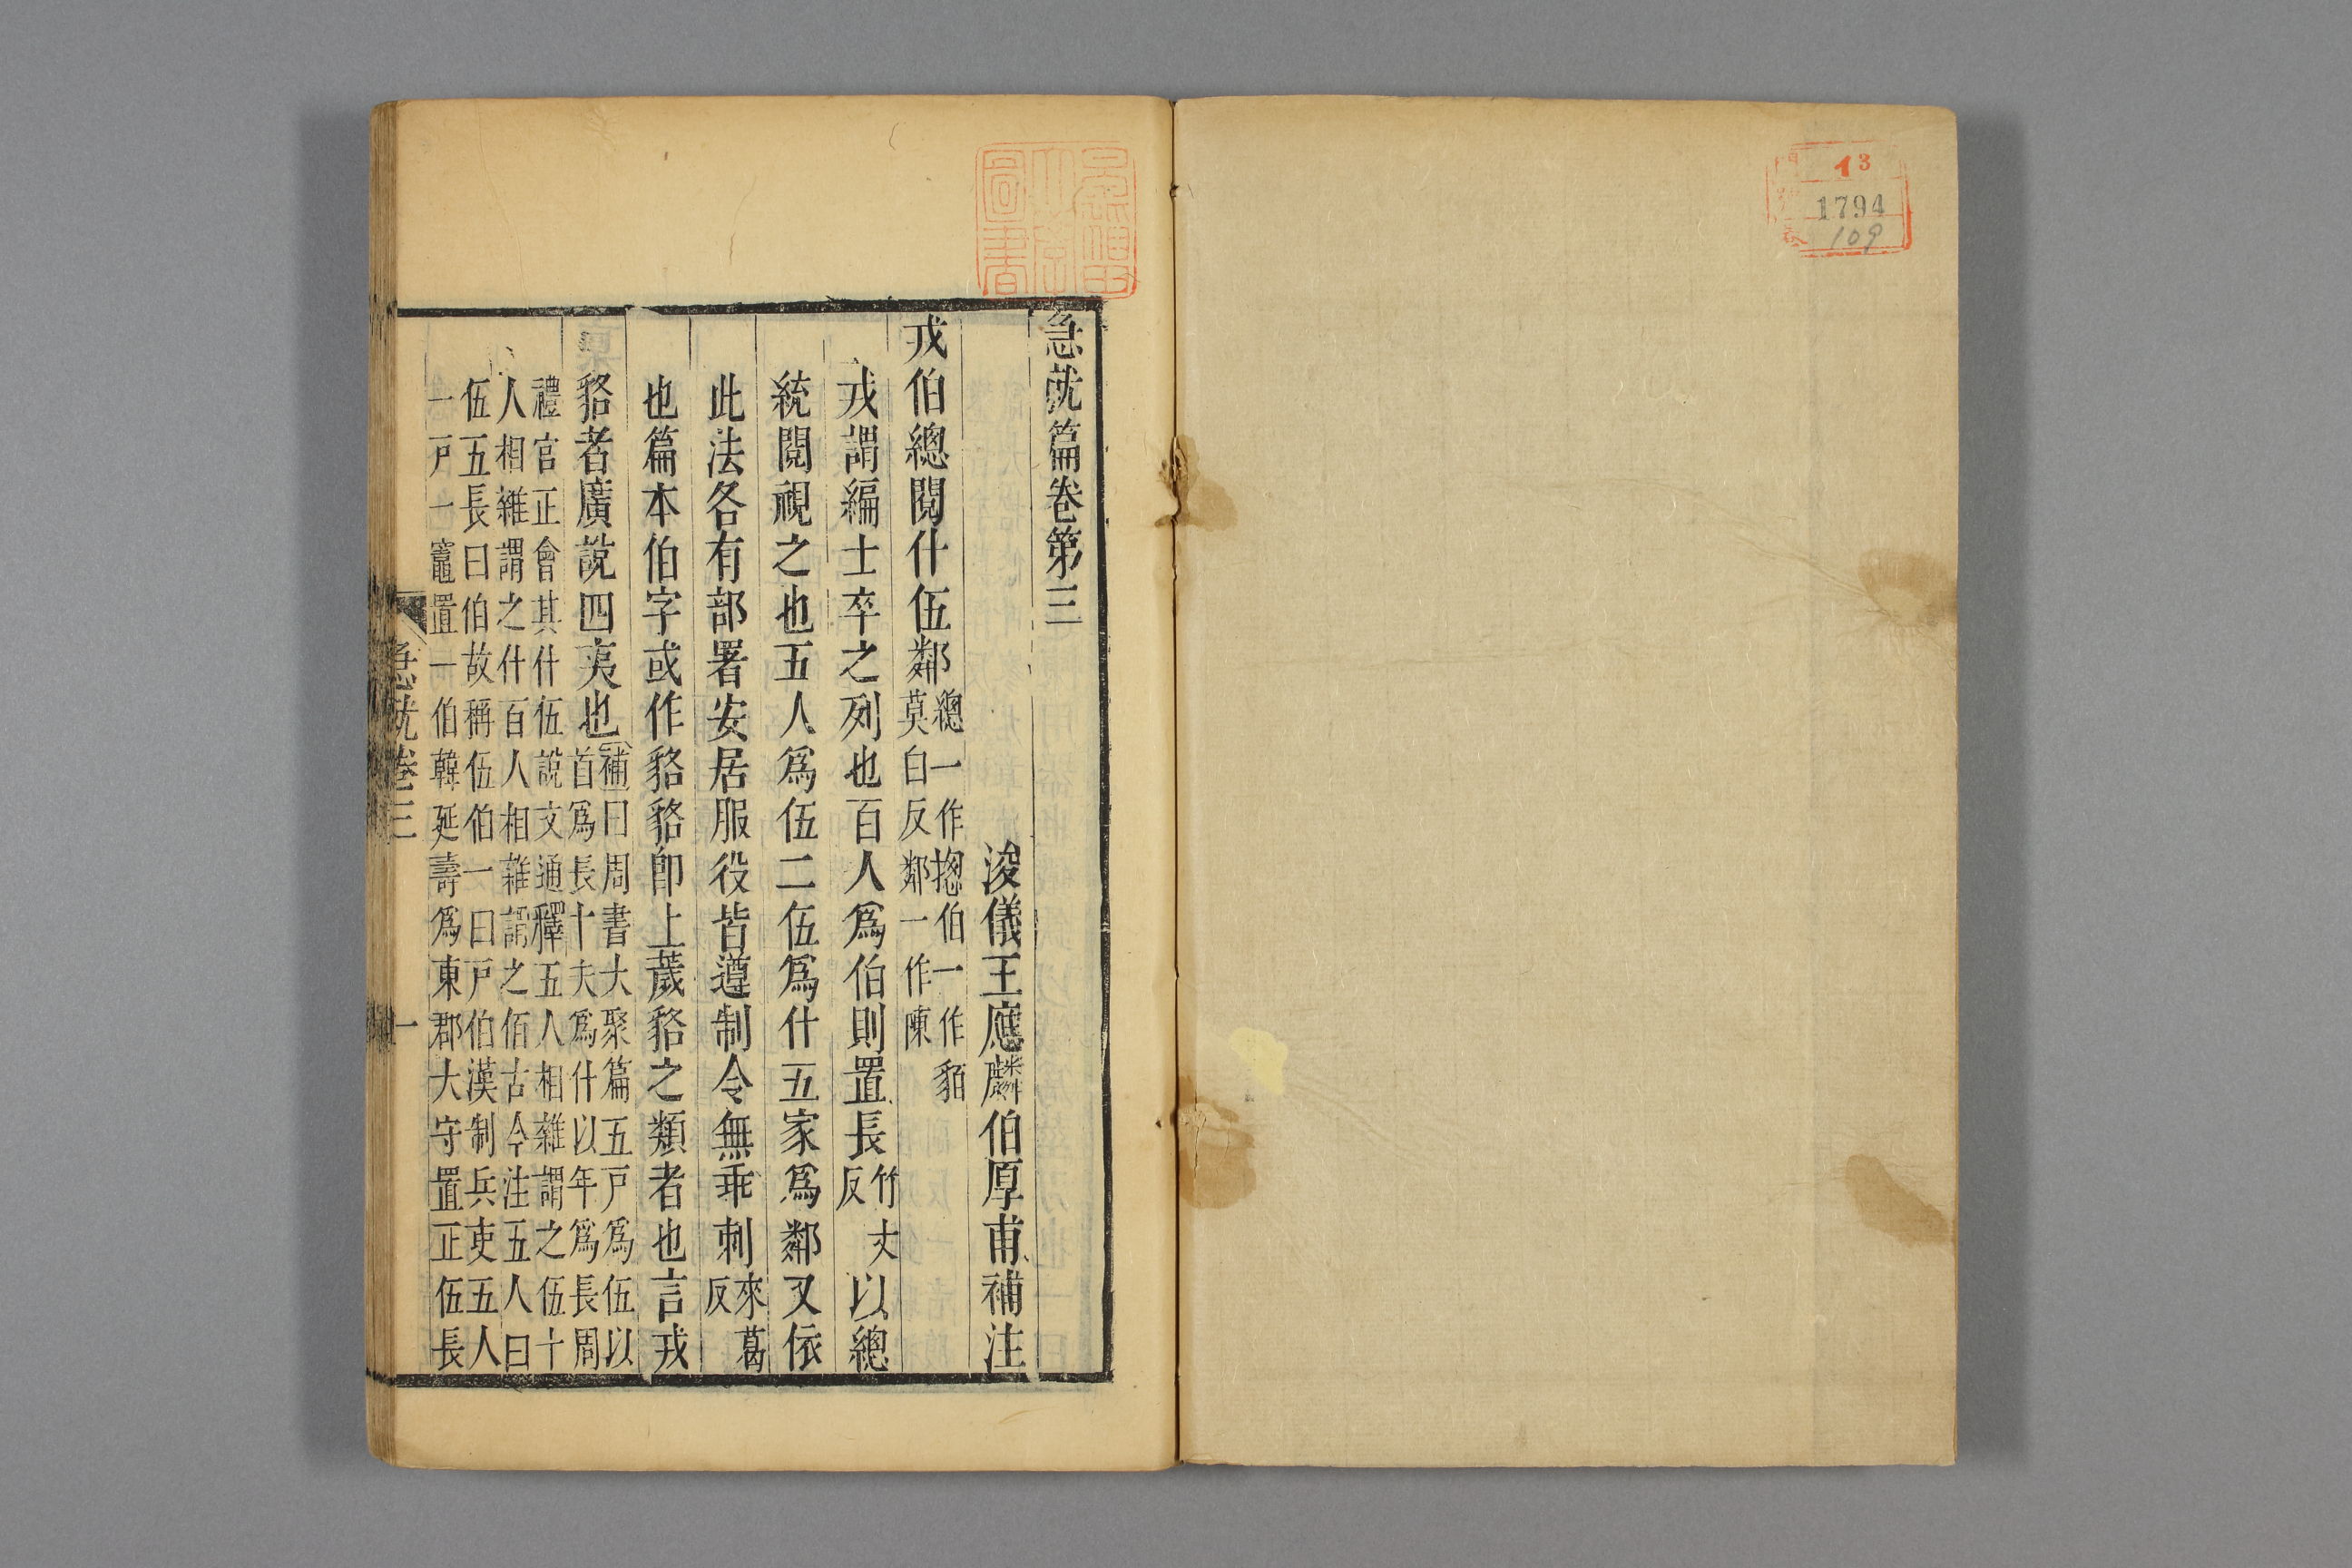 急就篇卷第三
浚儀王應麟伯厚甫補注
戎伯總閱什伍鄰總一作揔伯一作貊莫白反鄰一作陳
戎謂編士卒之列也百人爲伯則置長竹丈反以總
統閱視之也五人爲伍二伍爲什五家爲鄰又依
此法各有部署安居服役皆遵制令無乖剌來葛反
也篇本伯字或作貉貉卽上薉貉之類者也言戎
貉者廣說四夷也補曰周書大聚篇五戸爲伍以首爲長十夫爲什以年爲長周
禮官正會其什伍說文通釋五人相雜謂之伍十
人相雜謂之什百人相雜謂之佰古今注五人曰
伍五長曰伯故稱伍伯一曰戸伯漢制兵吏五人
一戸一竈置一伯韓延壽爲東郡大守置正伍長
急就卷三
一
圖書
13
1794
109